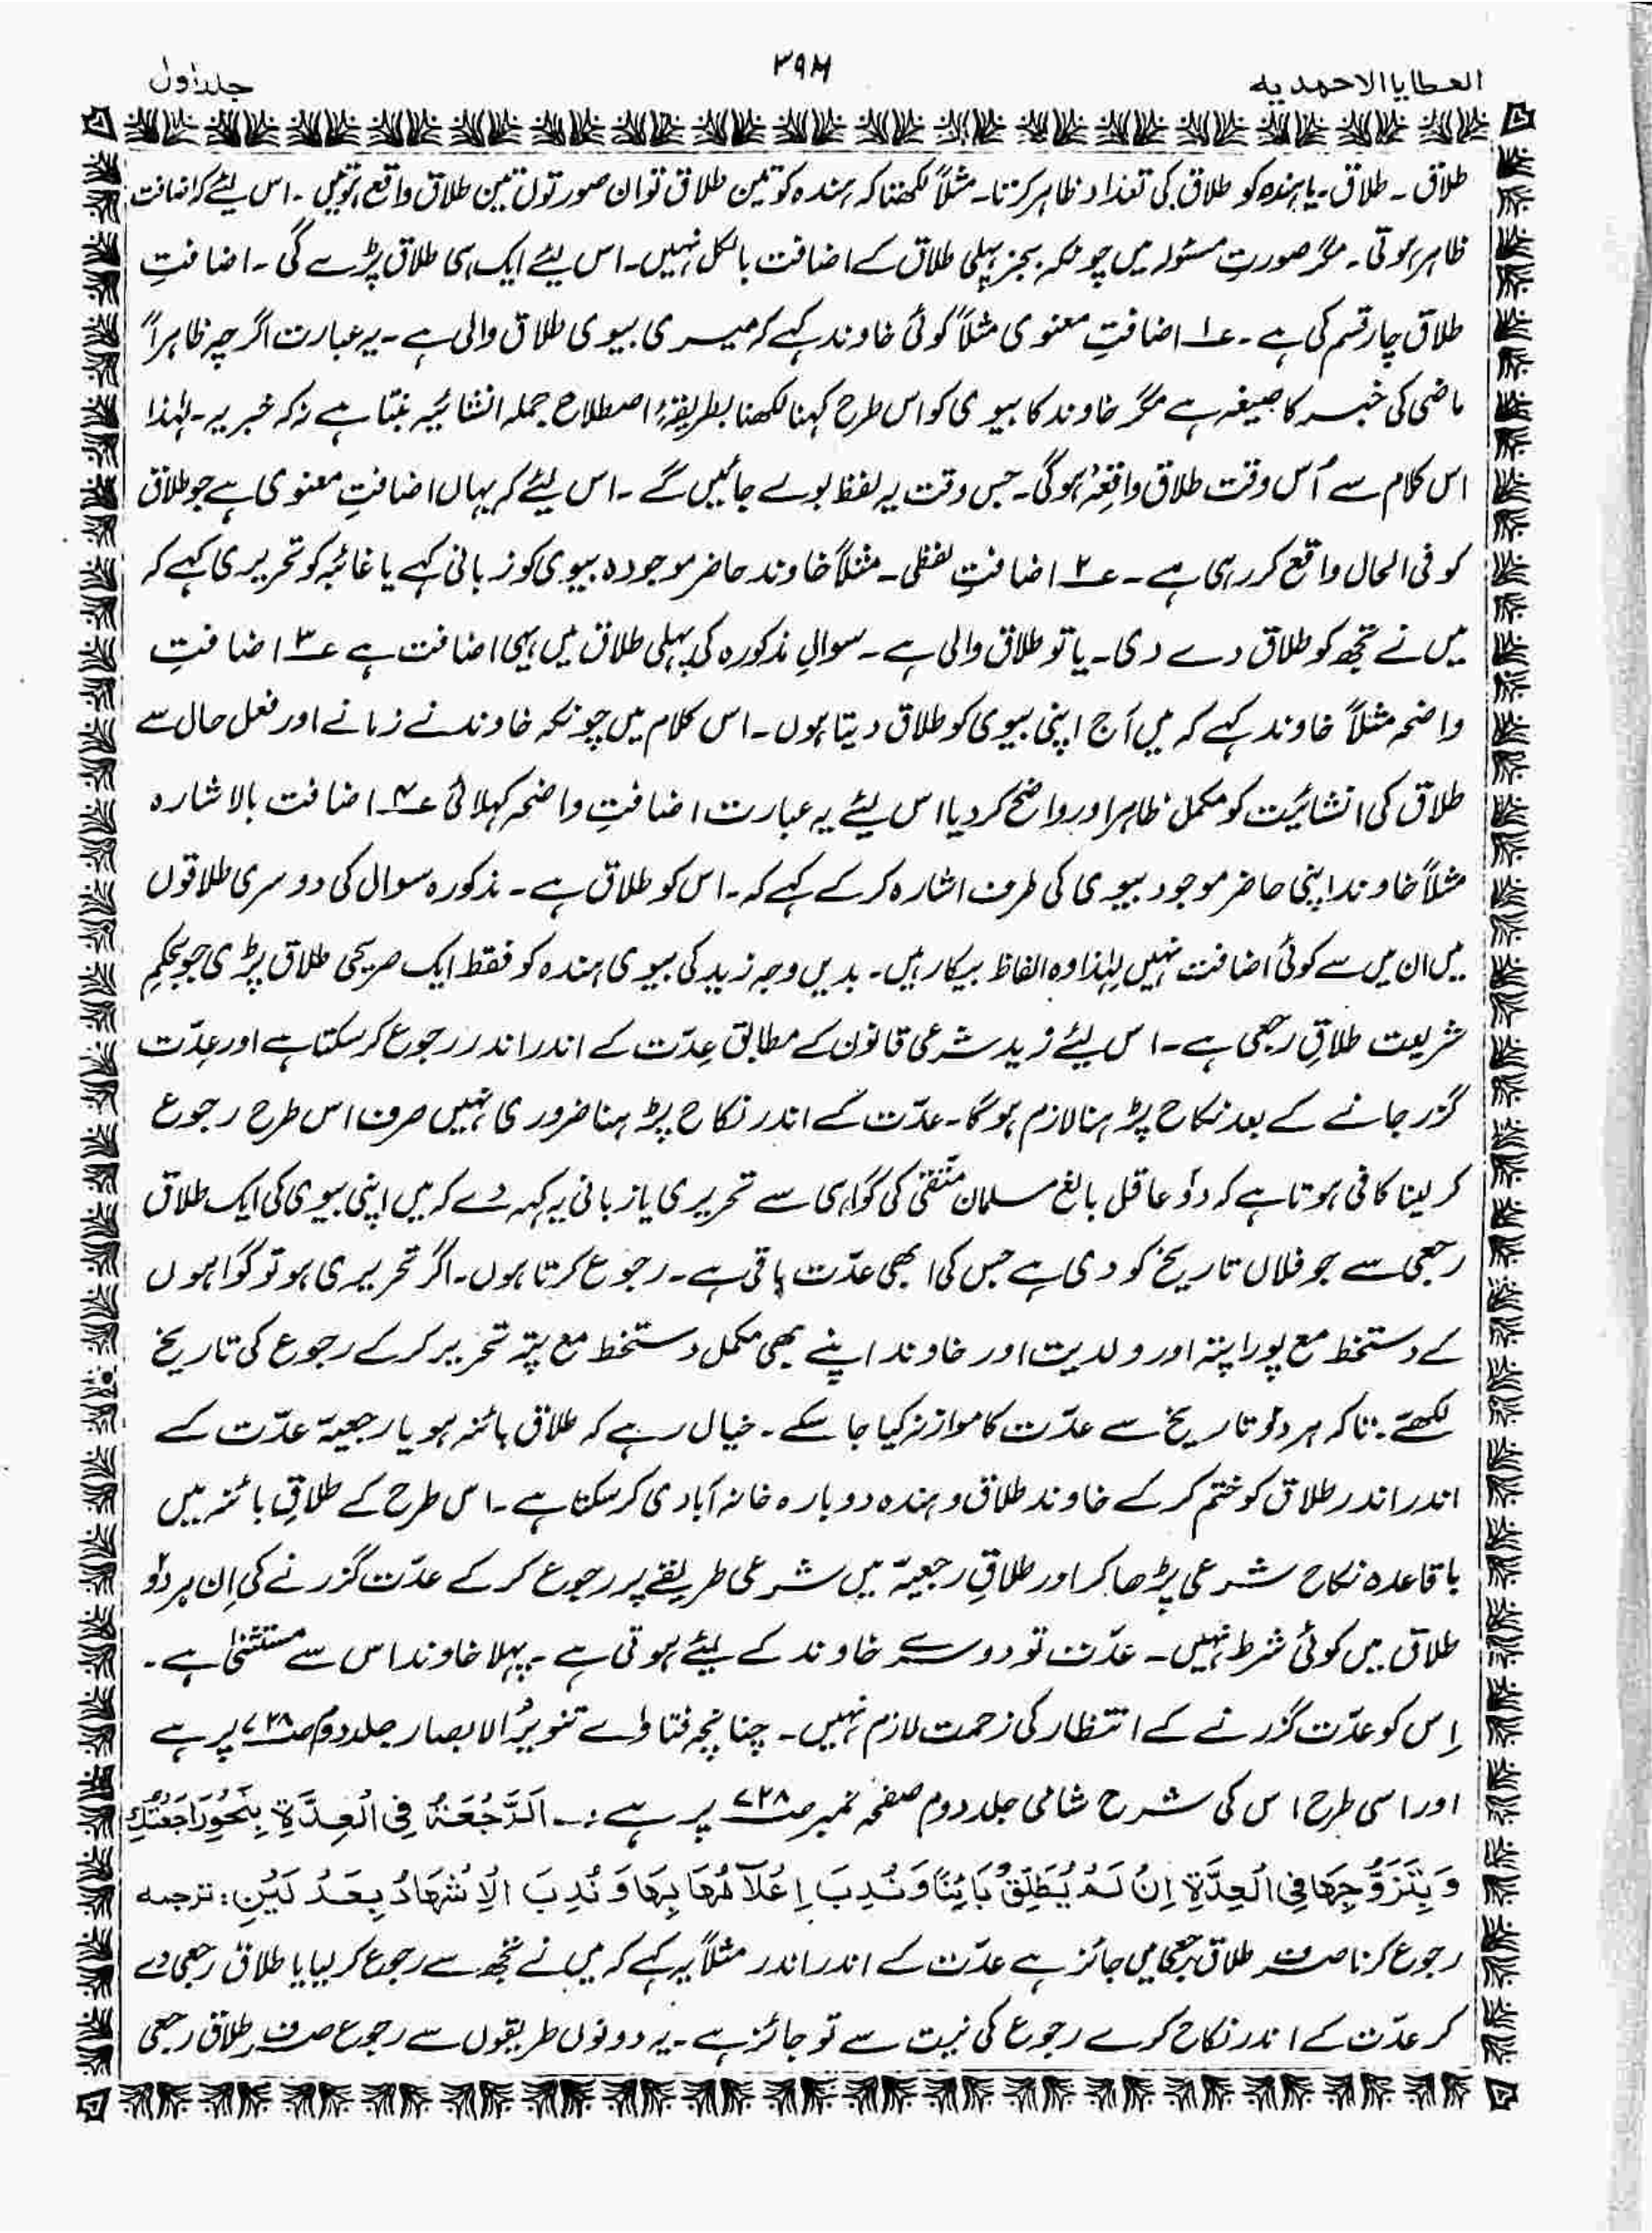 العطایا الاحمدیہ
۳۹۴
جلد اول
طلاق ۔ طلاق ۔ یا ہندہ کو طلاق کی تعداد ظاہر کرتا۔ مثلاً لکھتا کہ ہندہ کو تین طلاق تو ان صورتوں تین طلاق واقع ہوتیں ۔ اس لیئے کہ اضافت
ظاہر ہوتی ۔ مگر صورتِ مسئولہ میں چونکہ بجز پہلی طلاق کے اضافت بالکل نہیں۔ اس لیئے ایک ہی طلاق پڑے گی ۔ اضافتِ
طلاق چار قسم کی ہے ۔ ؏۱ اضافتِ معنوی مثلاً کوئی خاوند کہے کہ میری بیوی طلاق والی ہے ۔ یہ عبارت اگرچہ ظاہراً
ماضی کی خبر کا صیغہ ہے مگر خاوند کا بیوی کو اس طرح کہنا لکھنا بطریقۂ اصطلاح جملہ انشائیہ بنتا ہے نہ کہ خبریہ ۔ لہٰذا
اس کلام سے اُس وقت طلاق واقعہ ہوگی ۔ جس وقت یہ لفظ بولے جائیں گے ۔ اس لیئے کہ یہاں اضافتِ معنوی ہے جو طلاق
کو فی الحال واقع کر رہی ہے ۔ ؏۲ اضافتِ لفظی ۔ مثلاً خاوند حاضر موجودہ بیوی کو زبانی کہے یا غائبہ کو تحریری کہے کہ
میں نے تجھ کو طلاق دے دی ۔ یا تو طلاق والی ہے ۔ سوالِ مذکورہ کی پہلی طلاق میں یہی اضافت ہے ؏۳ اضافتِ
واضحہ مثلاً خاوند کہے کہ میں آج اپنی بیوی کو طلاق دیتا ہوں ۔ اس کلام میں چونکہ خاوند نے زمانے اور فعل حال سے
طلاق کی انشائیت کو مکمل ظاہر اور واضح کر دیا اس لیئے یہ عبارت اضافتِ واضحہ کہلائی ؏۴ اضافت بالاشارہ
مثلاً خاوند اپنی حاضر موجود بیوی کی طرف اشارہ کر کے کہے کہ ۔ اس کو طلاق ہے ۔ مذکورہ سوال کی دوسری طلاقوں
میں ان میں سے کوئی اضافت نہیں لہٰذا وہ الفاظ بیکار ہیں ۔ بدیں وجہ زید کی بیوی ہندہ کو فقط ایک صریحی طلاق پڑی جو بحکمِ
شریعت طلاقِ رجعی ہے ۔ اس لیئے زید شرعی قانون کے مطابق عِدّت کے اندر اندر رجوع کر سکتا ہے اور عِدّت
گزر جانے کے بعد نکاح پڑہنا لازم ہوگا ۔ عدّت کے اندر نکاح پڑہنا ضروری نہیں صرف اس طرح رجوع
کر لینا کافی ہوتا ہے کہ دوؔ عاقل بالغ مسلمان متّقی کی گواہی سے تحریری یا زبانی یہ کہہ دے کہ میں اپنی بیوی کی ایک طلاق
رجعی سے جو فلاں تاریخ کو دی ہے جس کی ابھی عدّت باقی ہے ۔ رجوع کرتا ہوں ۔ اگر تحریری ہو تو گواہوں
کے دستخط مع پورا پتہ اور ولدیت اور خاوند اپنے بھی مکمل دستخط مع پتہ تحریر کر کے رجوع کی تاریخ
لکھے ؛ تاکہ ہر دو تاریخ سے عدّت کا موازنہ کیا جا سکے ۔ خیال رہے کہ طلاق بائنہ ہو یا رجعیہ عدّت کے
اندر اندر طلاق کو ختم کر کے خاوند طلاق دہندہ دوبارہ خانہ آبادی کر سکتا ہے ۔ اس طرح کے طلاقِ بائنہ میں
باقاعدہ نکاح شرعی پڑھا کر اور طلاقِ رجعیہ میں شرعی طریقے پر رجوع کر کے عدّت گزرنے کی اِن ہر دو
طلاق میں کوئی شرط نہیں ۔ عدّت تو دوسرے خاوند کے لیئے ہوتی ہے ۔ پہلا خاوند اس سے مستثنیٰ ہے ۔
اِس کو عدّت گزرنے کے انتظار کی زحمت لازم نہیں ۔ چنانچہ فتاوٰے تنویرُ الابصار جلد دوم صـ۷۲۸ پر ہے
اور اسی طرح اس کی شرح شامی جلد دوم صفحہ نمبر صـ۷۲۸ پر ہے :۔ اَلرَّجْعَةُ فِی الْعِدَّةِ بِنَحْوِ رَاجَعْتُكِ
وَ بِتَزَوُّجِهَا فِی الْعِدَّةِ اِنْ لَمْ یُطَلِّقْ بَائِنًا وَنُدِبَ اِعْلَامُهَا بِهَا وَ نُدِبَ الْاِشْهَادُ بِعَدْلَیْنِ : ترجمہ
رجوع کرنا صرف طلاق رجعی میں جائز ہے عدّت کے اندر اندر مثلاً یہ کہے کہ میں نے تجھ سے رجوع کر لیا یا طلاق رجعی دے
کر عدّت کے اندر نکاح کرے رجوع کی نیت سے تو جائز ہے ۔ یہ دونوں طریقوں سے رجوع صرف طلاق رجعی